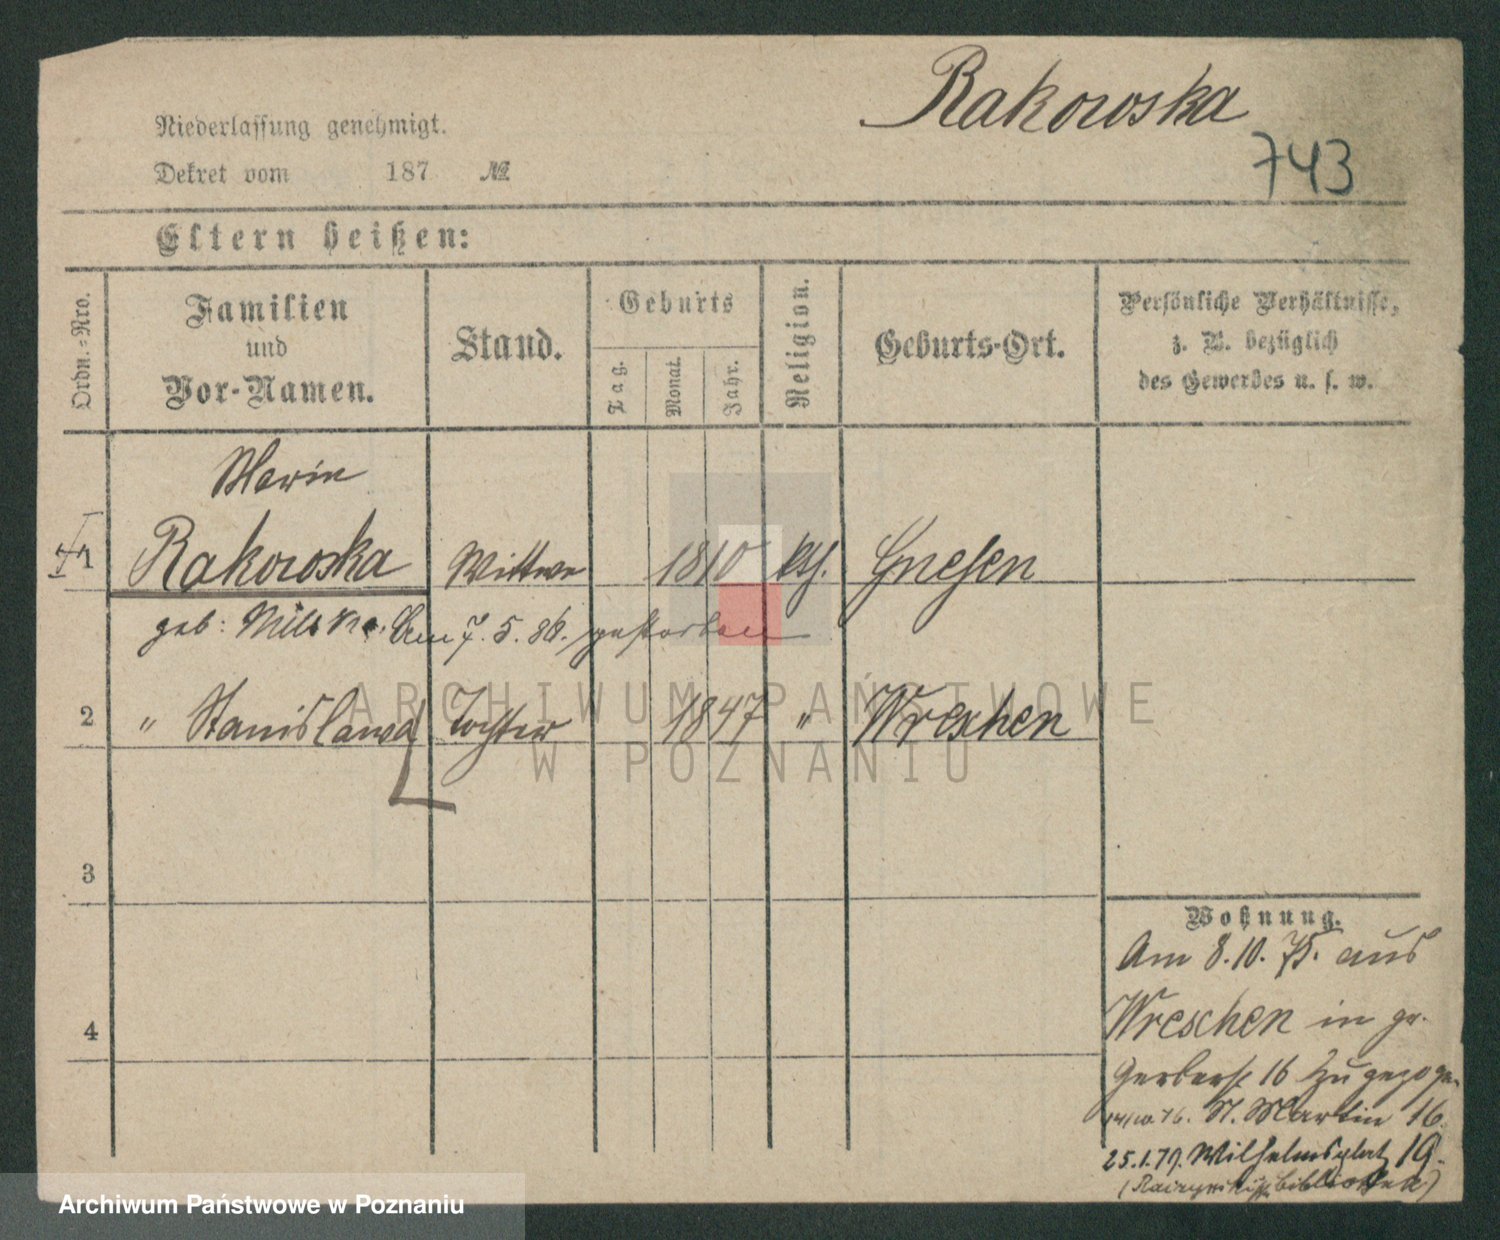 Rakowska
743
Niederlassung genehmigt.
Dekret vom 187 №
Eltern heißen:
Ordn.-Nro.
Familien
und
Vor-Namen.
Stand.
Geburts
Tag.
Monat.
Jahr.
Religion.
Geburts-Ort.
Persönliche Verhältnisse,
z. B. bezüglich
des Gewerbes u. s. w.
Marie
1 Rakowska Wittwe 1810 kth. Gnesen
geb: Am 7. 5. 86. gestorben
2 " Stanislawa Tochter 1847 " Wreschen
3
4
Wohnung.
Am 8.10.75. aus
Wreschen in gr.
Gerberst 16 zugezogen
14/10.76. St. Martin 16.
25.1.79. Wilhelmsplatz 19.
(Raczynskische Bibliothek)
ARCHIWUM PAŃSTWOWE
W POZNANIU
Archiwum Państwowe w Poznaniu